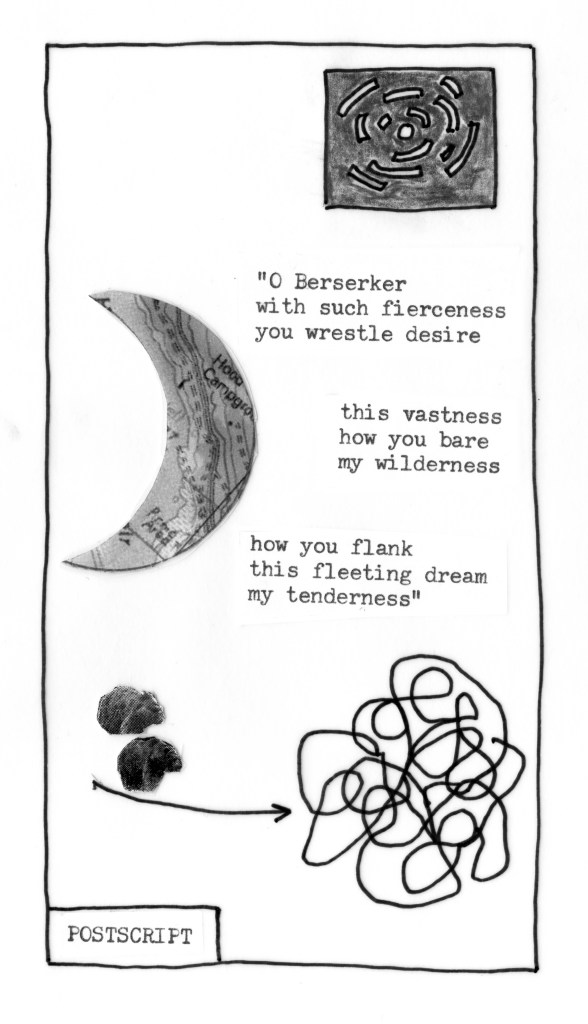 "O Berserker
with such fierceness
you wrestle desire
this vastness
how you bare
my wilderness
Hood
Campgro
Area
how you flank
this fleeting dream
my tenderness"
POSTSCRIPT